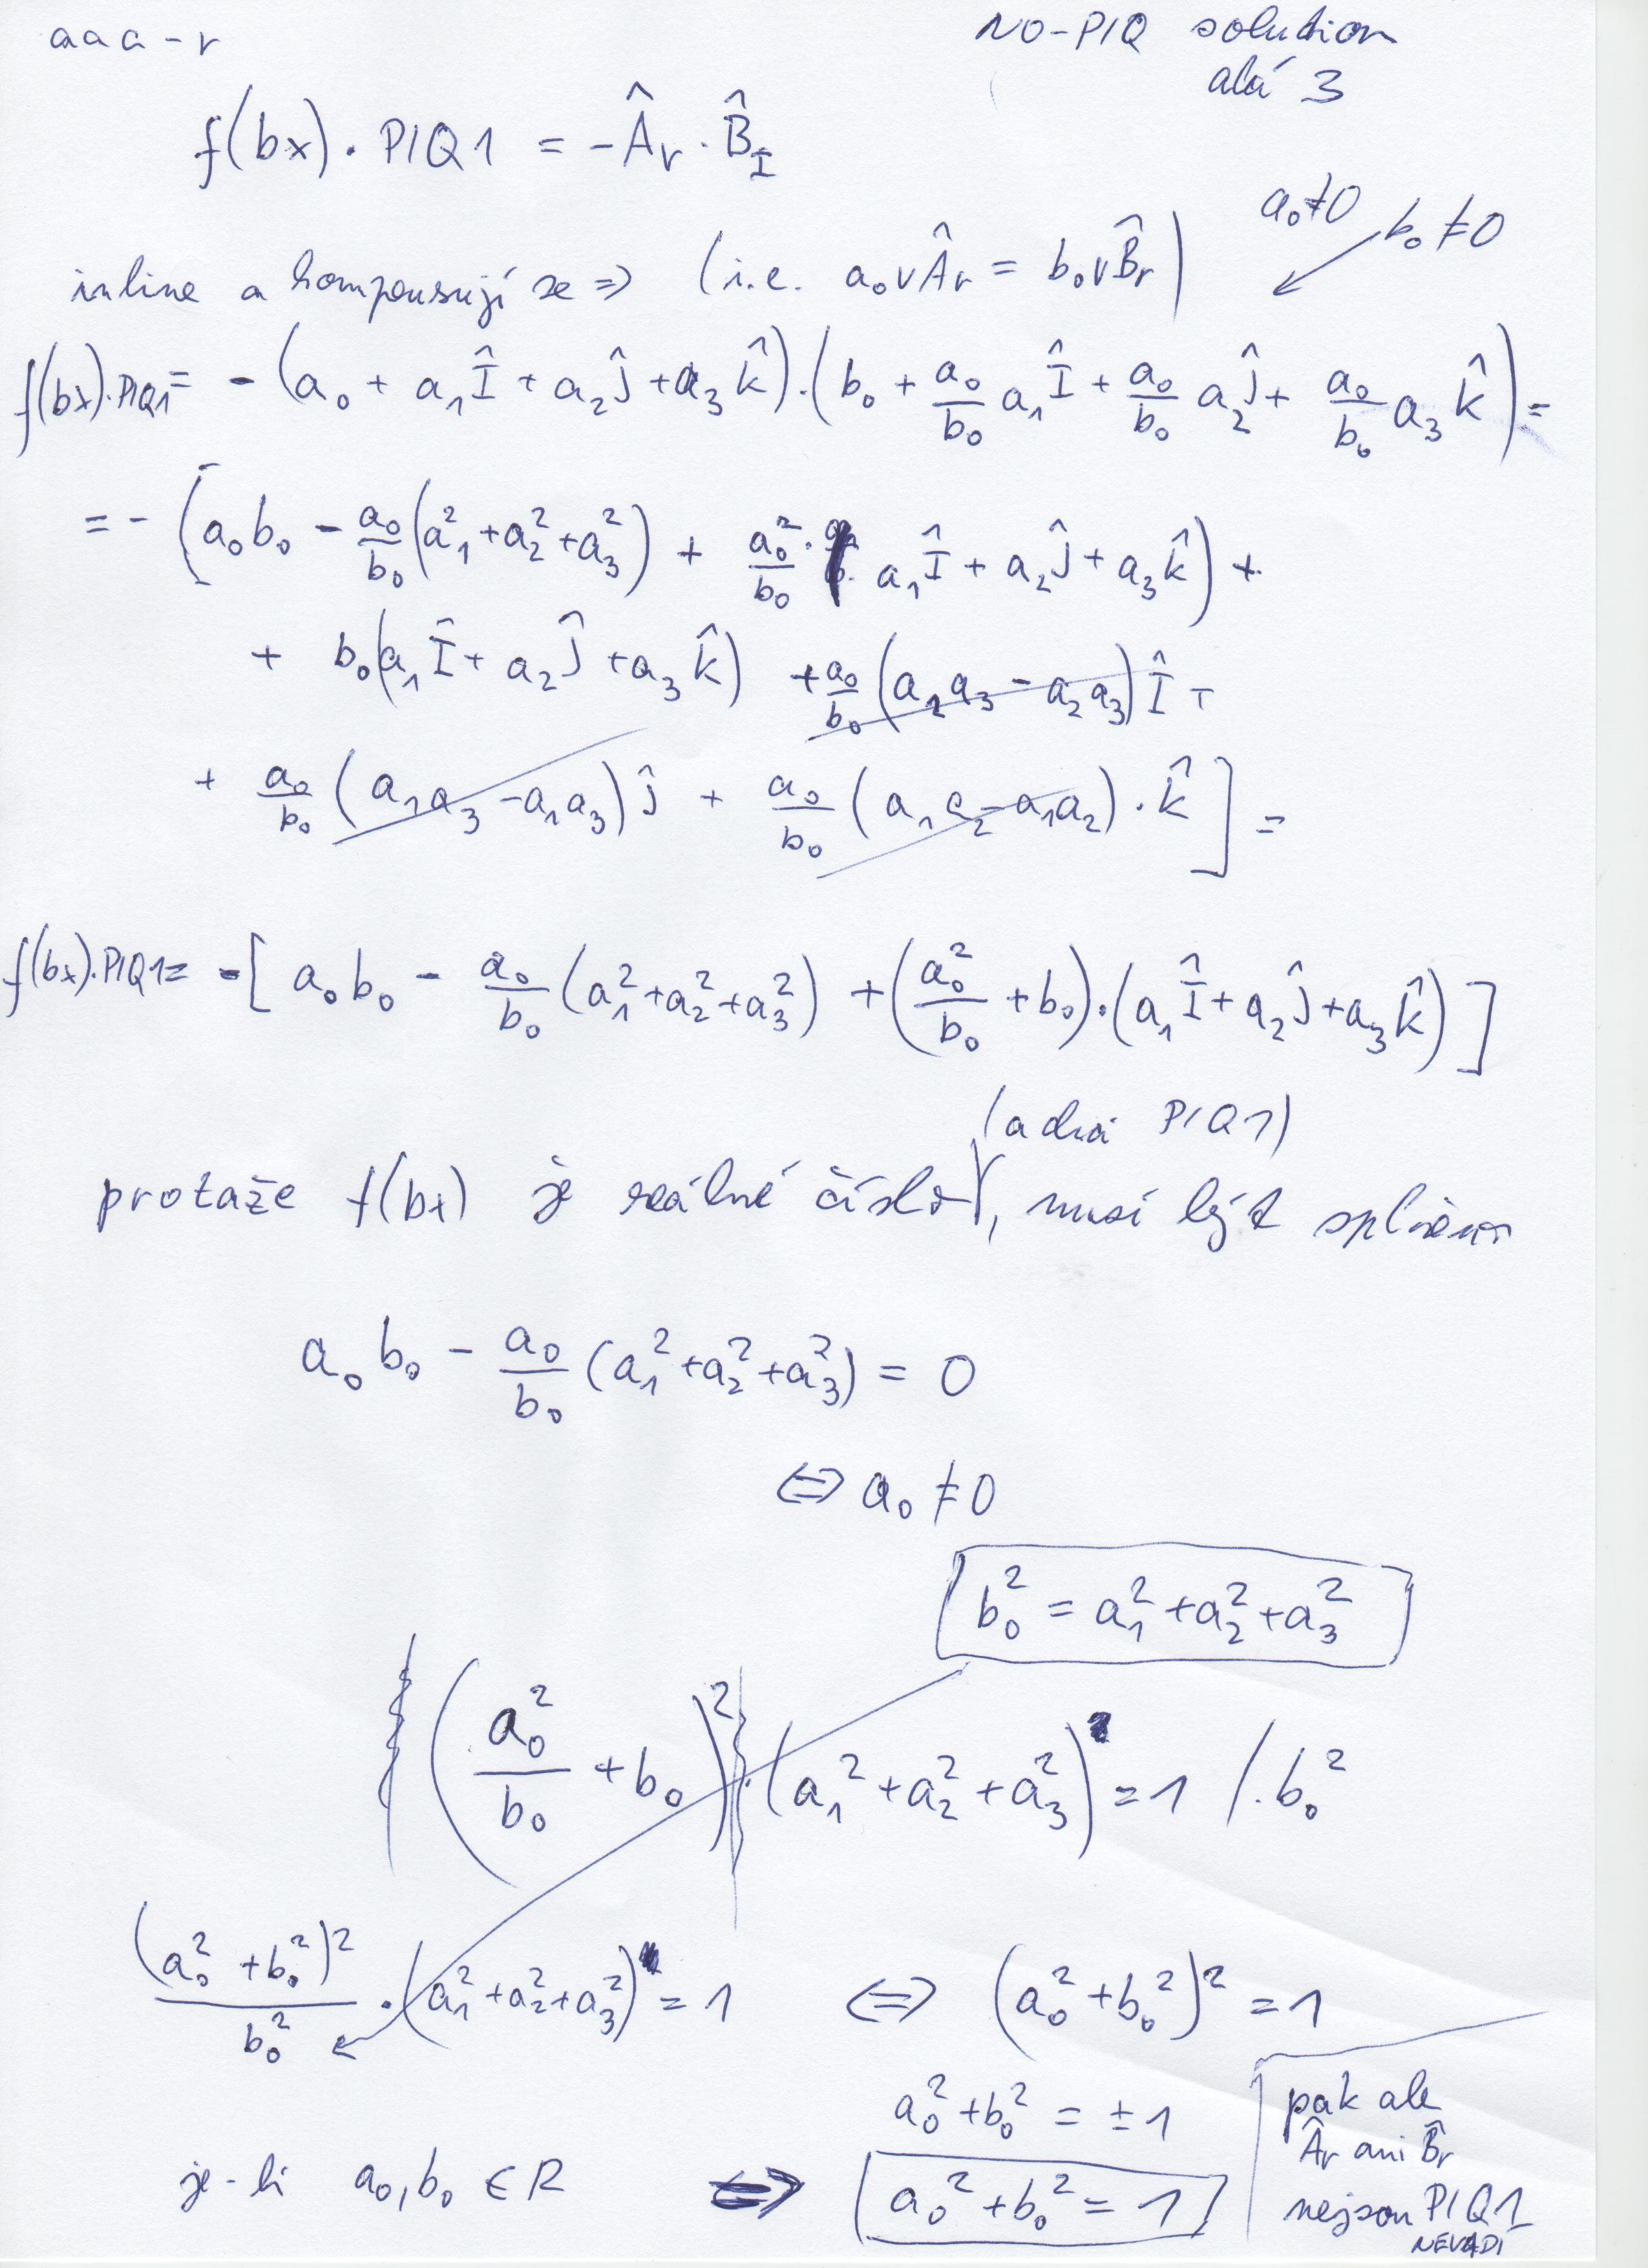 aaa-r
NO-PIQ solution
alá 3
f(bx) . PIQ1 = -Â_r . B̂_I
a₀≠0 b₀≠0
inline a kompensují se ⇒ (i.e. a₀vÂ_r = b₀vB̂_r)
f(bx).PIQ1= - (a₀ + a₁Î + a₂Ĵ + a₃K̂).(b₀ + a₀/b₀ a₁Î + a₀/b₀ a₂Ĵ + a₀/b₀ a₃K̂) =
= - (a₀b₀ - a₀/b₀ (a₁²+a₂²+a₃²) + a₀²/b₀ . a₁Î + a₂Ĵ + a₃K̂) +
+ b₀(a₁Î + a₂Ĵ + a₃K̂) + a₀/b₀ (a₂a₃ - a₂a₃) Î +
+ a₀/b₀ (a₁a₃ - a₁a₃) Ĵ + a₀/b₀ (a₁a₂ - a₁a₂) . K̂ ] =
f(bx).PIQ1= -[ a₀b₀ - a₀/b₀ (a₁²+a₂²+a₃²) + (a₀²/b₀ + b₀).(a₁Î + a₂Ĵ + a₃K̂) ]
(a dvá PIQ1)
protože f(bx) je reálné číslo, musí být splněno
a₀b₀ - a₀/b₀ (a₁²+a₂²+a₃²) = 0
⇔ a₀ ≠ 0
b₀² = a₁²+a₂²+a₃²
(a₀²/b₀ + b₀)² . (a₁²+a₂²+a₃²) = 1 /. b₀²
(a₀²+b₀²)²/b₀² . (a₁²+a₂²+a₃²) = 1 ⇔ (a₀²+b₀²)² = 1
a₀²+b₀² = ±1
je-li a₀,b₀ ∈ R ⇔ a₀²+b₀² = 1
pak ale
Âr ani B̂r
nejsou PIQ1
NEVADÍ